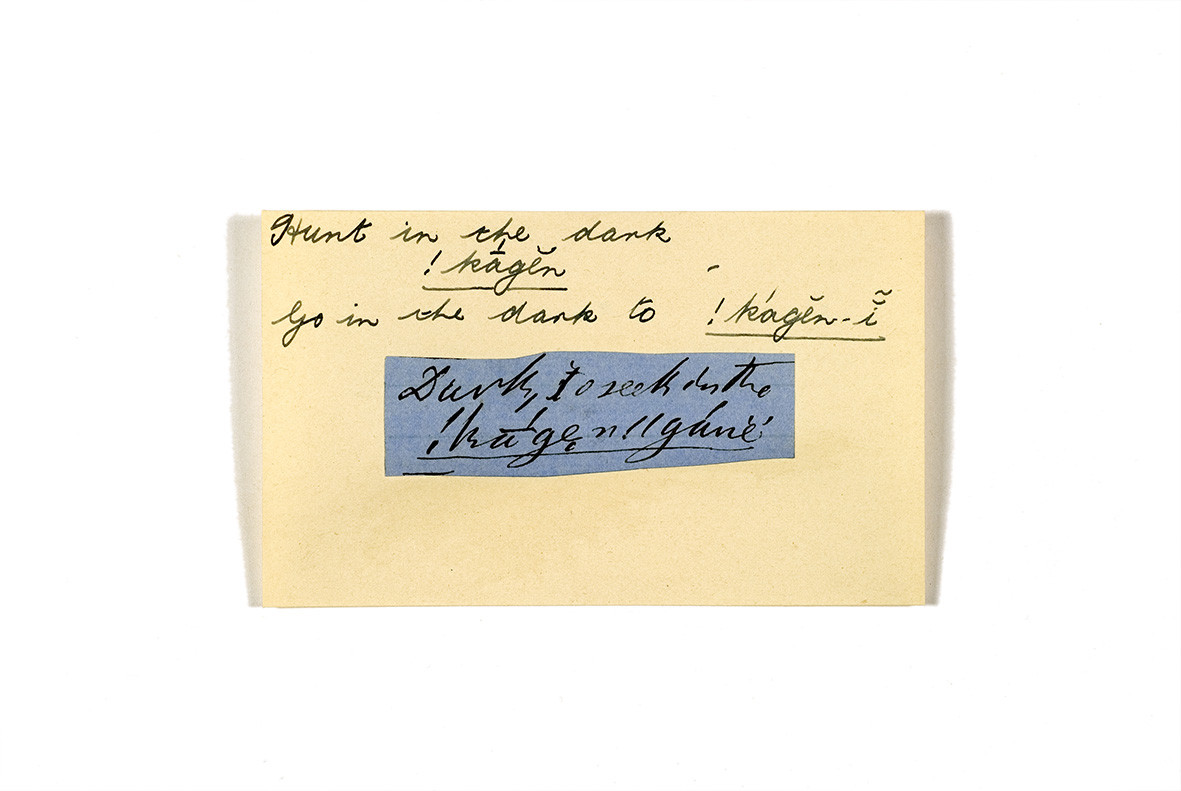 Hunt in the dark
!kā́gĕn
Go in the dark to !kágĕn-ĩ̆
Dark, to seek in the
!kā́gen ‖gáuë